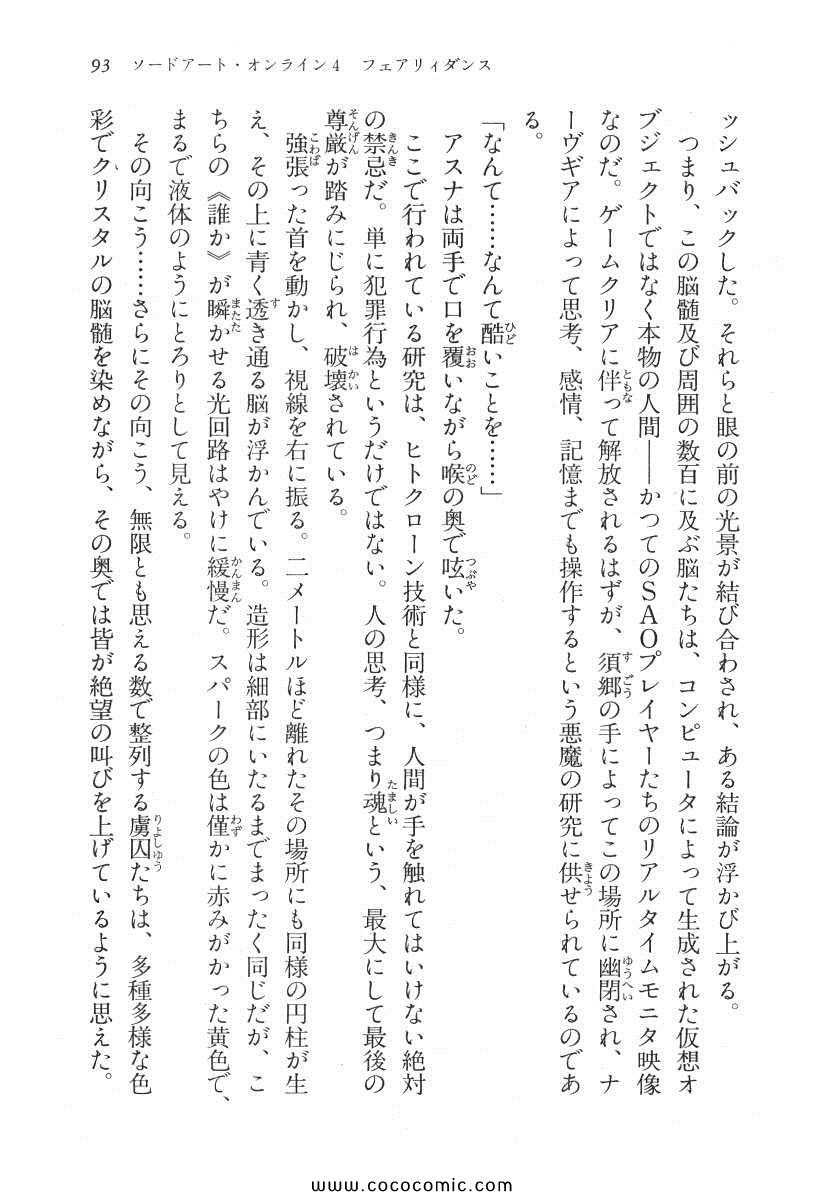 93 ソードアート・オンライン4 フェアリィダンス
ッシュバックした。それらと眼の前の光景が結び合わされ、ある結論が浮かび上がる。
つまり、この脳髄及び周囲の数百に及ぶ脳たちは、コンピュータによって生成された仮想オ
ブジェクトではなく本物の人間――かつてのSAOプレイヤーたちのリアルタイムモニタ映像
なのだ。ゲームクリアに伴って解放されるはずが、須郷の手によってこの場所に幽閉され、ナ
ーヴギアによって思考、感情、記憶までも操作するという悪魔の研究に供せられているのであ
る。
「なんて……なんて酷いことを……」
アスナは両手で口を覆いながら喉の奥で呟いた。
ここで行われている研究は、ヒトクローン技術と同様に、人間が手を触れてはいけない絶対
の禁忌だ。単に犯罪行為というだけではない。人の思考、つまり魂という、最大にして最後の
尊厳が踏みにじられ、破壊されている。
強張った首を動かし、視線を右に振る。二メートルほど離れたその場所にも同様の円柱が生
え、その上に青く透き通る脳が浮かんでいる。造形は細部にいたるまでまったく同じだが、こ
ちらの《誰か》が瞬かせる光回路はやけに緩慢だ。スパークの色は僅かに赤みがかった黄色で、
まるで液体のようにとろりとして見える。
その向こう……さらにその向こう、無限とも思える数で整列する虜囚たちは、多種多様な色
彩でクリスタルの脳髄を染めながら、その奥では皆が絶望の叫びを上げているように思えた。
www.cococomic.com